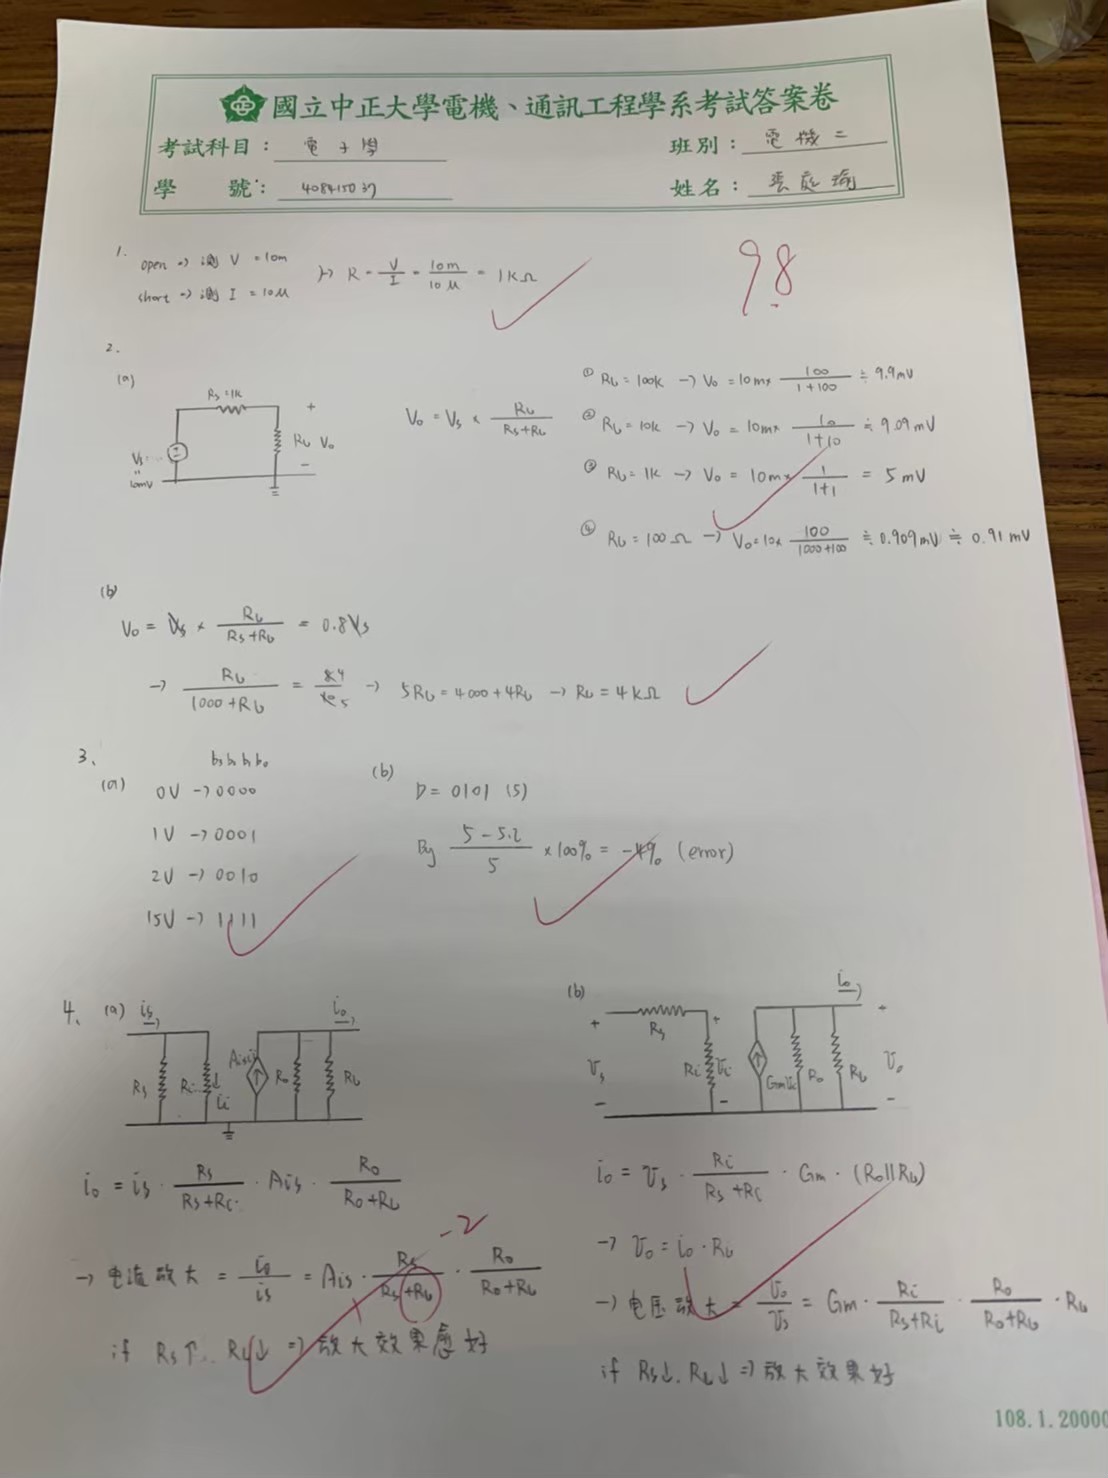 國立中正大學電機、通訊工程學系考試答案卷
考試科目: 電子學
班別: 電機二
學 號: 408415037
姓名:
98
1.
open => 測 V = 10m
short => 測 I = 10μ
}→ R = V/I = 10m/10μ = 1kΩ
2.
(a)
Rs=1k
+
RL Vo
-
Vs
=
10mV
Vo = Vs × RL/(Rs+RL)
① RL = 100k → Vo = 10m× 100/(1+100) ≒ 9.9mV
② RL = 10k → Vo = 10m× 10/(1+10) ≒ 9.09mV
③ RL = 1k → Vo = 10m× 1/(1+1) = 5mV
④ RL = 100Ω → Vo = 10× 100/(1000+100) ≒ 0.909mV ≒ 0.91mV
(b)
Vo = Vs × RL/(Rs+RL) = 0.8Vs
→ RL/(1000+RL) = 8 4/10 5 → 5RL = 4000+4RL → RL = 4kΩ
3.
(a)
b3 b2 b1 b0
0V → 0000
1V → 0001
2V → 0010
15V → 1111
(b)
D = 0101 (5)
By (5-5.2)/5 ×100% = -4% (error)
4. (a)
is
io
Rs Ri ii Ais ii Ro RL
io = is · Rs/(Rs+Ri) · Ais · Ro/(Ro+RL)
-2
→ 电流放大 = io/is = Ais · Rs/(Rs+RL) · Ro/(Ro+RL)
if Rs↑, RL↓ => 放大效果愈好
(b)
io
+ Rs + +
Vs Ri Vi GmVi Ro RL Vo
- - -
io = Vs · Ri/(Rs+Ri) · Gm · (Ro||RL)
→ Vo = io · RL
→ 电压放大 = Vo/Vs = Gm · Ri/(Rs+Ri) · Ro/(Ro+RL) · RL
if Rs↓, RL↓ => 放大效果好
108.1.20000